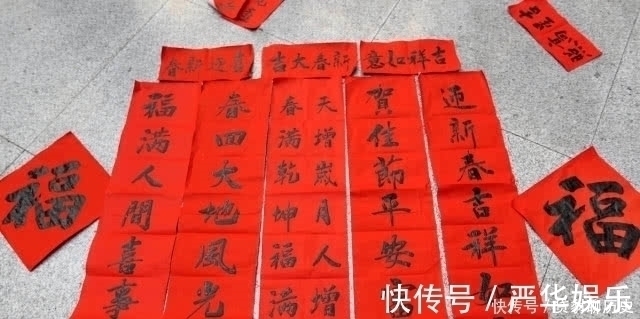 喜迎新春
新春大吉
吉祥如意
迎新春吉祥如
賀佳節平安
天增歲月人增
春滿乾坤福滿
春回大地風光
福滿人間喜事
福
福
快传号／晋华娱乐
快传号